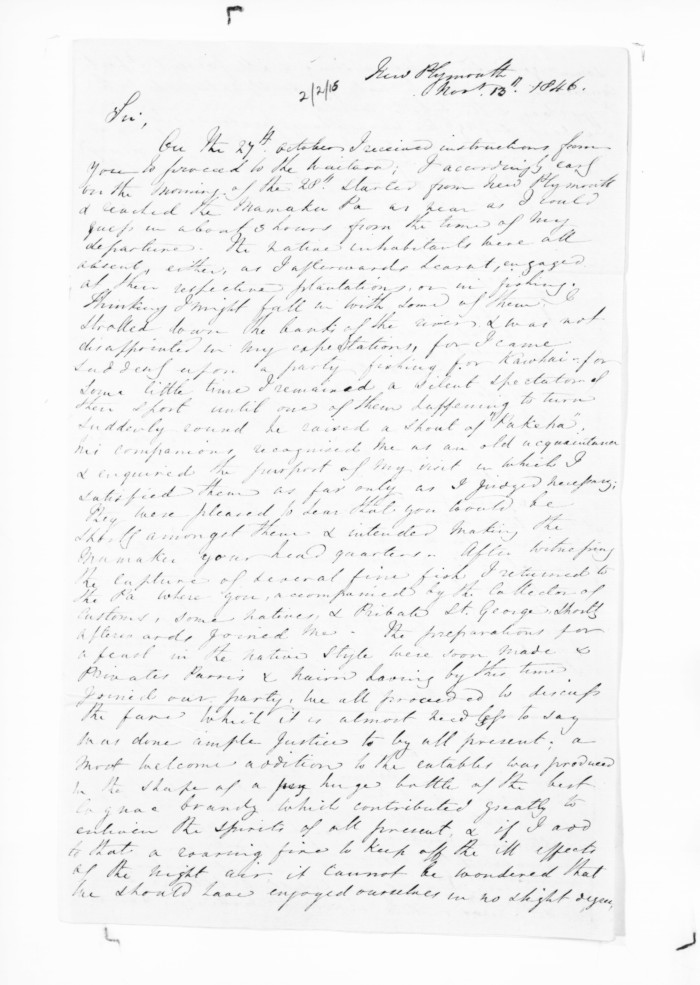 New Plymouth
Novr. 13th. 1846.
2/2/15
Sir,
On the 27th October I received instructions from
you to proceed to the Waitara; I accordingly early
on the morning of the 28th started from New Plymouth
& reached the Mamaku Pa as near as I could
guess in about 3 hours from the time of my
departure. The native inhabitants were all
absent, either, as I afterwards learnt, engaged
at their respective plantations, or in fishing.
Thinking I might fall in with some of them I
strolled down the bank of the river & was not
disappointed in my expectations, for I came
suddenly upon a party fishing for Kawhai - for
some little time I remained a silent spectator of
their sport until one of them happening to turn
suddenly round he raised a shout of "Pakeha".
his companions recognised me as an old acquaintance
& enquired the purport of my visit in which I
satisfied them as far only as I judged necessary;
They were pleased to hear that you would be
shortly amongst them & intended making the
Mamaku your head quarters. After witnessing
the capture of several fine fish I returned to
the Pa where you, accompanied by the Collector of
Customs, some natives, & Private St. George, shortly
afterwards joined me. The preparations for
a feast in the native style were soon made &
Privates Parris & Nairn having by this time
joined our party, we all proceeded to discuss
the fare which it is almost needless to say
was done ample justice to by all present; a
most welcome addition to the eatables was produced
in the shape of a huge bottle of the best
Cognac brandy which contributed greatly to
enliven the spirits of all present, & if I add
to that a roaring fire to keep off the ill effects
of the night air it cannot be wondered that
we should have enjoyed ourselves in no slight degree,